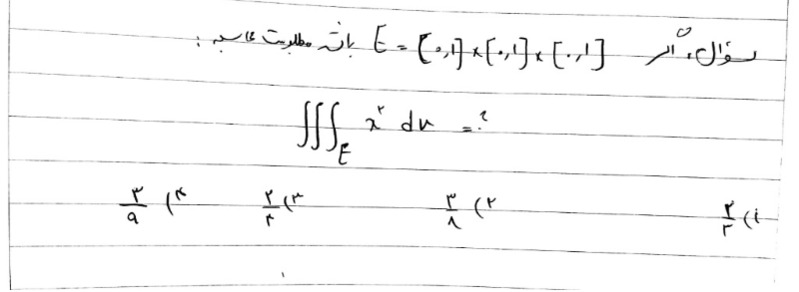 سؤال، اگر E = [۰,۱]×[۰,۱]×[۰,۱] باشد مطلوبست محاسبه :
∭_E x^۲ dv = ?
۱) ۲/۳ ۲) ۳/۸ ۳) ۲/۴ ۴) ۳/۹